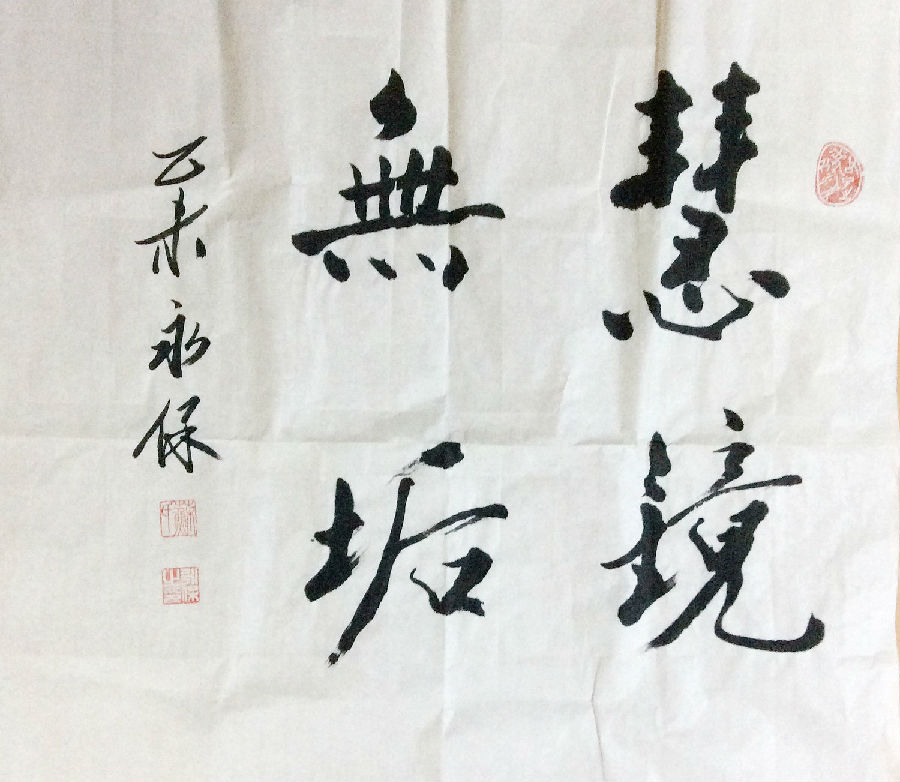 慧鏡
無垢
乙未永保